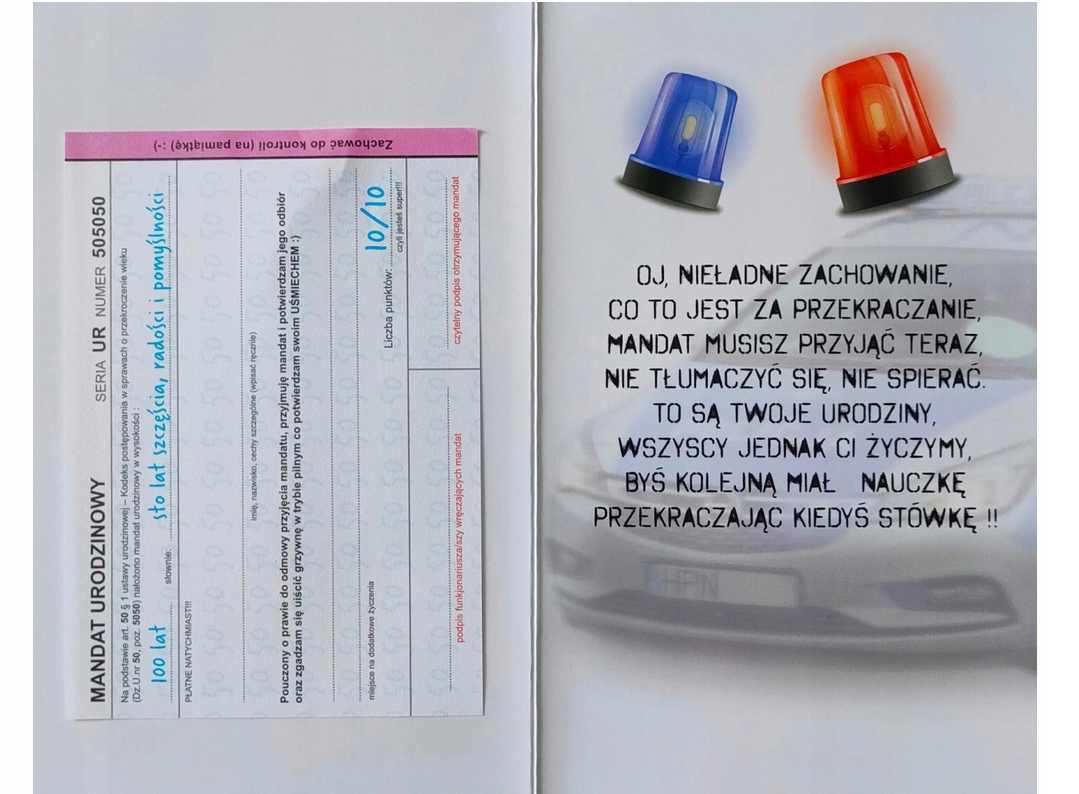 MANDAT URODZINOWY SERIA UR NUMER 505050
Na podstawie art. 50 § 1 ustawy urodzinowej – Kodeks postępowania w sprawach o przekroczenie wieku
(Dz.U.nr 50, poz. 5050) nałożono mandat urodzinowy w wysokości :
100 lat słownie: sto lat szczęścia, radości i pomyślności
PŁATNE NATYCHMIAST!!!
imię, nazwisko, cechy szczególne (wpisać ręcznie)
Pouczony o prawie do odmowy przyjęcia mandatu, przyjmuję mandat i potwierdzam jego odbiór
oraz zgadzam się uiścić grzywnę w trybie pilnym co potwierdzam swoim UŚMIECHEM :)
miejsce na dodatkowe życzenia
Liczba punktów: 10/10
czyli jesteś super!!!
podpis funkcjonariusza/szy wręczających mandat
czytelny podpis otrzymującego mandat
Zachować do kontroli (na pamiątkę) :-)
OJ, NIEŁADNE ZACHOWANIE,
CO TO JEST ZA PRZEKRACZANIE,
MANDAT MUSISZ PRZYJĄĆ TERAZ,
NIE TŁUMACZYĆ SIĘ, NIE SPIERAĆ.
TO SĄ TWOJE URODZINY,
WSZYSCY JEDNAK CI ŻYCZYMY,
BYŚ KOLEJNĄ MIAŁ NAUCZKĘ
PRZEKRACZAJĄC KIEDYŚ STÓWKĘ !!
HPN